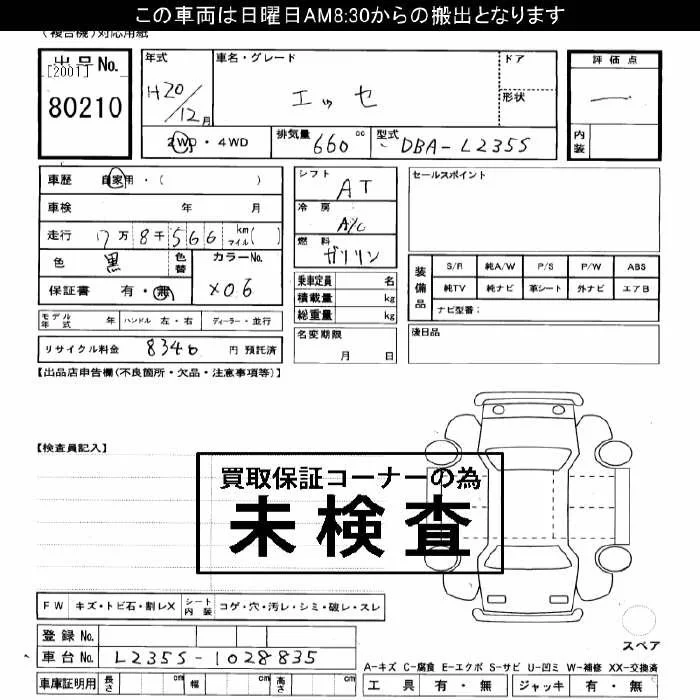 この車両は日曜日AM8:30からの搬出となります
(複合機)対応用紙
出品No.
[2001]
80210
年式
H20/12月
車名・グレード
エッセ
ドア
形状
評価点
一
内装
2WD・4WD
排気量
660 cc
型式
DBA-L235S
車歴 自家用・( )
車検 年 月
走行 7万8千566 km マイル( )
色 黒
色替
カラーNo.
X06
保証書 有・無
モデル年式 年
ハンドル 左・右
ディーラー・並行
リサイクル料金 8340 円 預託済
シフト
AT
冷房
A/C
燃料
ガソリン
乗車定員 名
積載量 kg
総重量 kg
名変期限
月 日
セールスポイント
装備品
S/R 純A/W P/S P/W ABS
純TV 純ナビ 革シート 外ナビ エアB
ナビ型番:
後日品
【出品店申告欄(不良箇所・欠品・注意事項等)】
【検査員記入】
買取保証コーナーの為
未検査
FW キズ・トビ石・割レX
シート内装 コゲ・穴・汚レ・シミ・破レ・スレ
登録No.
車台No. L235S-1028835
車庫証明用 長さ cm 幅 cm 高さ cm
スペア
A-キズ C-腐食 E-エクボ S-サビ U-凹ミ W-補修 XX-交換済
工具 有・無 ジャッキ 有・無